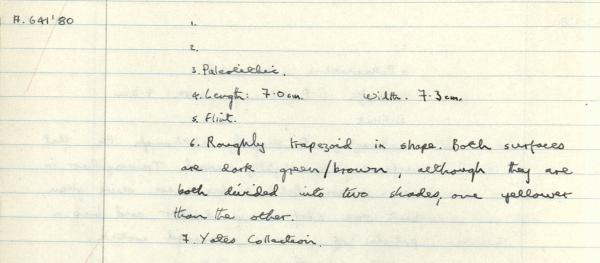 A.641'80
1.
2.
3. Paleolithic.
4. Length: 7.0cm. Width. 7.3cm.
5. Flint.
6. Roughly trapezoid in shape. Both surfaces
are dark green/brown, although they are
both divided into two shades, one yellower
than the other.
7. Yates Collection.